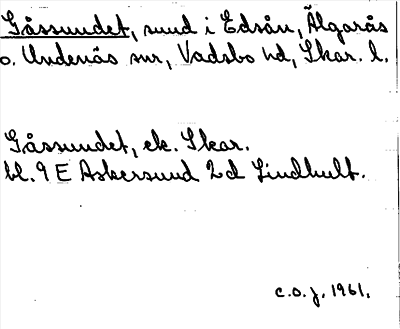 Gåssundet, sund i Edsån, Älgarås
o. Undenäs snr, Vadsbo hd, Skar. l.
Gåssundet, ek. Skar.
bl. 9 E Askersund 2d Lindhult.
c.o.j. 1961.